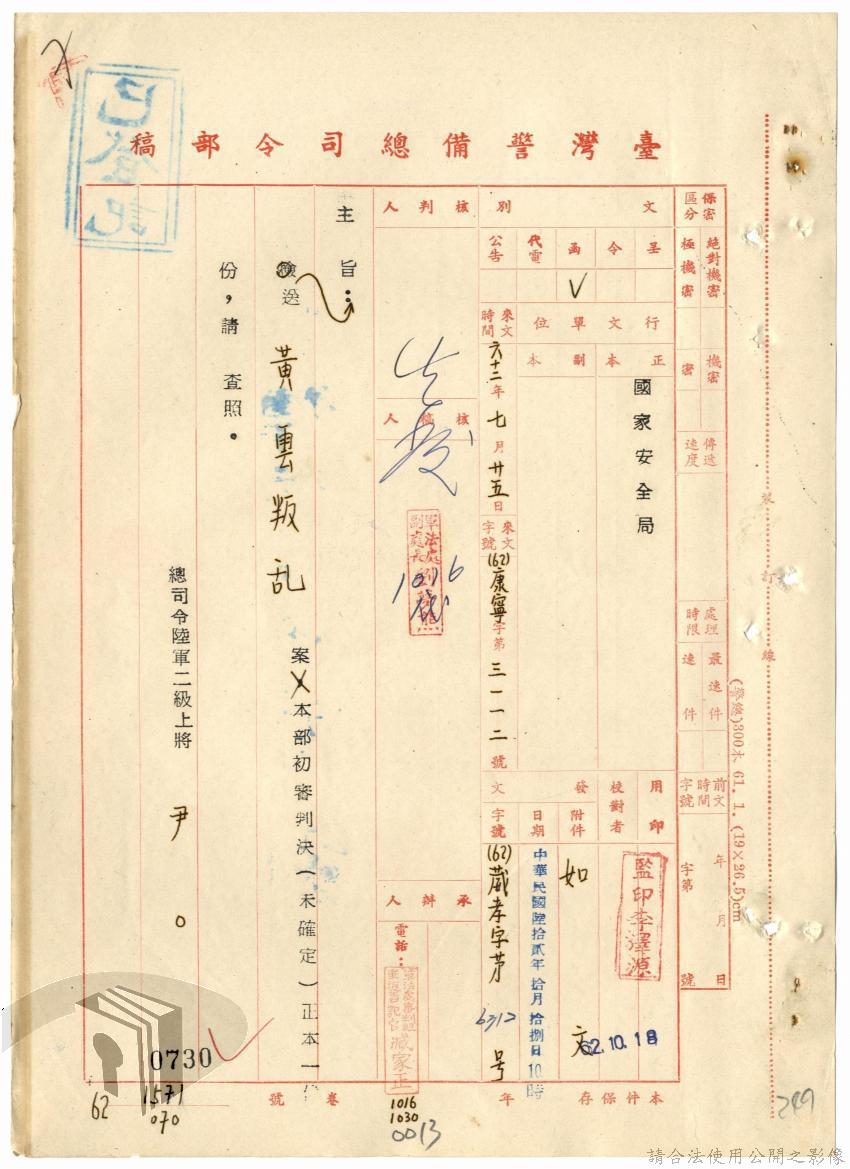 臺灣警備總司令部稿
已登記
保密區分
絕對機密
極機密
機密
密
傳遞速度
處理時限
最速件
速件
前文時間字號
年月日
字第號
文別
呈
令
函
V
代電
公告
行文單位
正本
國家安全局
副本
來文時間
六十二年七月廿五日
來文字號
(62)康寧字第三一一二號
用印
監印李澤源
校對者
發文
附件
如文
日期
中華民國陸拾貳年拾月拾捌日10時
62.10.18
字號
(62)葳孝字第6712号
核判人
核稿人
軍法處副處長
1016
承辦人
電話:
臧家正
主旨:
檢送黃雲叛乱案本部初審判決(未確定)正本一份,請查照。
總司令陸軍二級上將尹○
0730
本件保存年
卷號
1016
1030
0013
62
1571
070
249
裝訂線
(警總)300本 61. 1. (19×26.5)cm
請合法使用公開之影像